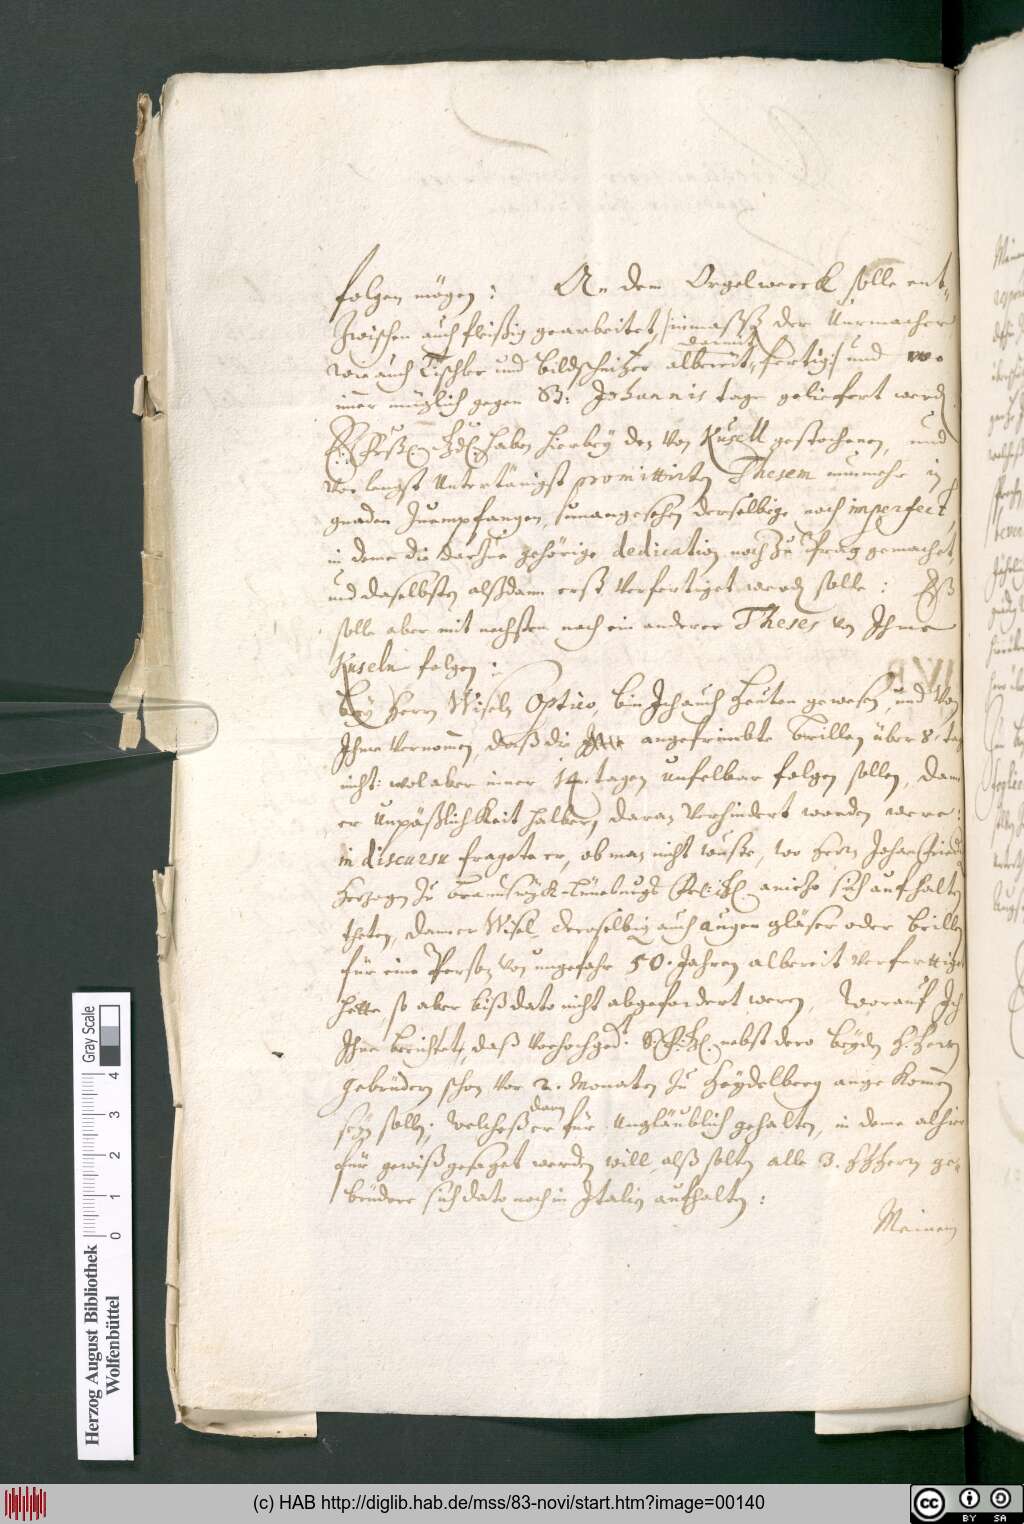 folgen mögen: An dem Orgelwerck solle ent-
Zwischen auch fleißig gearbeitet, inmaßß der Uhrmacher
wie auch Tischler und bildschnitzer albereit damit fertig, und wo
immer müglich gegen St: Johannis tage geliefert werden
haben hierbey den von Kusell gestochenen, und
vor langst Untertänigst promittirten Thesem nunmehr in
gnaden Zuempfangen, unangesehen derselbige noch imperfect,
in deme die darzue gehörige dedication noch Zu Prag gemachet,
und daselbsten alßdann erst Verfertiget werden solle: Eß
solle aber mit nechsten noch ein anderer Theses von Ihme
Kuseln folgen:
bey Herrn Wiseln Optico, bin Ich auch heuten gewesen, und von
Ihme vernommen, daß die angefrimbte brillen über 8. tag
nicht: wol aber inner 14. tagen unfelbar folgen sollen, dann
er Unpäßlichkeit halber, daran Verhindert worden were:
in discursu fragete er, ob man nicht wuste, wo Herrn Johan Friedr
Herzogen Zu Braunschweig Lüneburg anietzo sich aufhalten
theten, dann er Wisel, deroselbig auch augen gläser oder brillen
für eine Person von ungefahr 50. Jahren albereit verferttiget
hette, so aber biß dato nicht abgefordert weren, Worauf Ich
Ihne berichtet, daß Vorhochged. nebst dero beyden H. Herrn
gebrüdern schon vor 2. Monaten Zu Heydelberg angekommen
seyn sollen, welcheß er dann für Unglaüblich gehalten, in deme alhier
für gewiß gesaget werden will, alß solten alle 3. Herrn ge-
brüdere sich dato noch in Italien aufhalten:
Meinem
Herzog August Bibliothek
Wolfenbüttel
0 1 2 3 4
Gray Scale
(c) HAB http://diglib.hab.de/mss/83-novi/start.htm?image=00140
cc BY SA